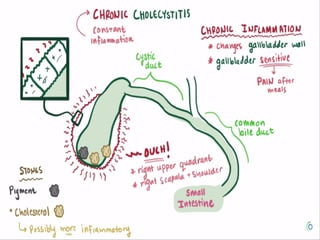 CHRONIC CHOLECYSTITIS
constant
inflammation
CHRONIC INFLAMMATION
* changes gallbladder wall
* gallbladder sensitive
PAIN after
meals
cystic
duct
common
bile duct
OUCH!
* right upper quadrant
* right scapula + shoulder
Small
Intestine
STONES
Pigment
* Cholesterol
↳ Possibly more inflammatory